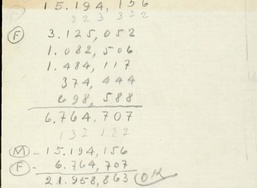 15.194,156
323 332
F 3.125,052
1.082,506
1.484,117
374,444
698,588
6.764.707
132 122
M - 15.194,156
F - 6.764,707
21.958,863 OK